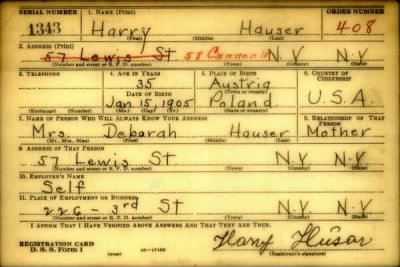 SERIAL NUMBER 1. NAME (Print) ORDER NUMBER
1343 Harry Hauser 408
(First) (Middle) (Last)
2. ADDRESS (Print)
57 Lewis St. 58 Cannon N.Y N.Y
(Number and street or R. F. D. number) (Town) (County) (State)
3. TELEPHONE 4. AGE IN YEARS 5. PLACE OF BIRTH 6. COUNTRY OF CITIZENSHIP
35 Austria
DATE OF BIRTH (Town or county)
Jan 15, 1905 Poland U.S.A.
(Exchange) (Number) (Mo.) (Day) (Yr.) (State or country)
7. NAME OF PERSON WHO WILL ALWAYS KNOW YOUR ADDRESS 8. RELATIONSHIP OF THAT PERSON
Mrs. Deborah Hauser Mother
(Mr., Mrs., Miss) (First) (Middle) (Last)
9. ADDRESS OF THAT PERSON
57 Lewis St N.Y N.Y
(Number and street or R. F. D. number) (Town) (County) (State)
10. EMPLOYER'S NAME
Self
11. PLACE OF EMPLOYMENT OR BUSINESS
226 - 3rd St N.Y N.Y
(Number and street or R. F. D. number) (Town) (County) (State)
I AFFIRM THAT I HAVE VERIFIED ABOVE ANSWERS AND THAT THEY ARE TRUE.
REGISTRATION CARD
D. S. S. Form 1 (over) (Registrant's signature)